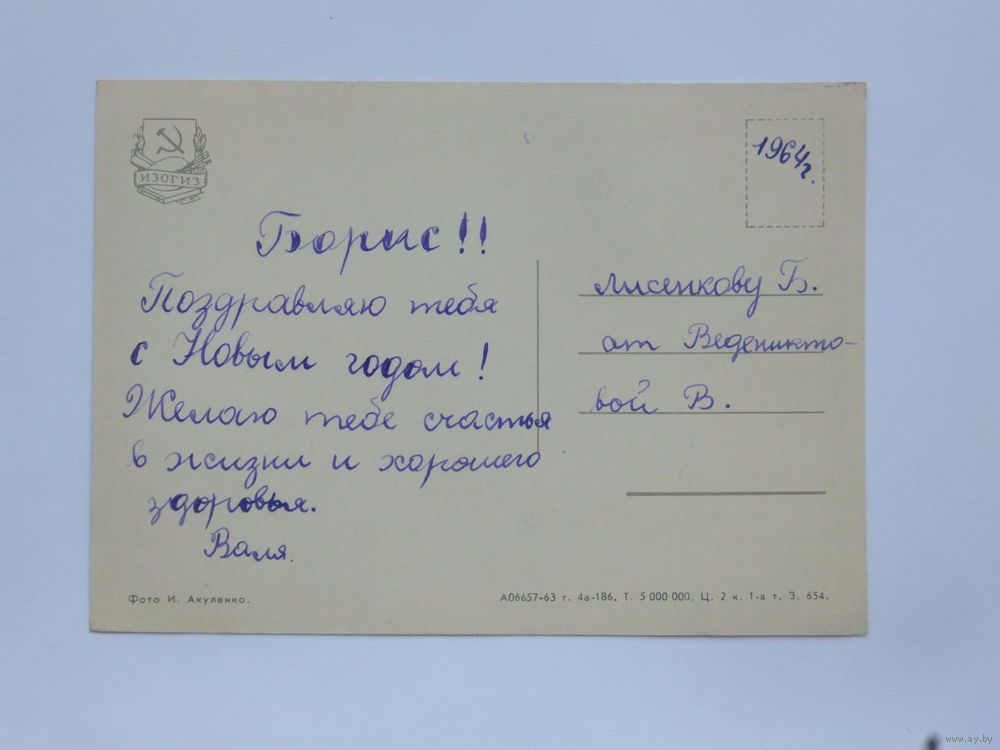 ИЗОГИЗ
1964г.
Борис!!
Поздравляю тебя
с Новым годом!
Желаю тебе счастья
в жизни и хорошего
здоровья.
Валя.
Лисенкову Б.
от Веденикто-
вой В.
Фото И. Акуленко.
А06657-63 г. 4а-186. Т. 5 000 000. Ц. 2 к. 1-я т. З. 654.
www.ay.by